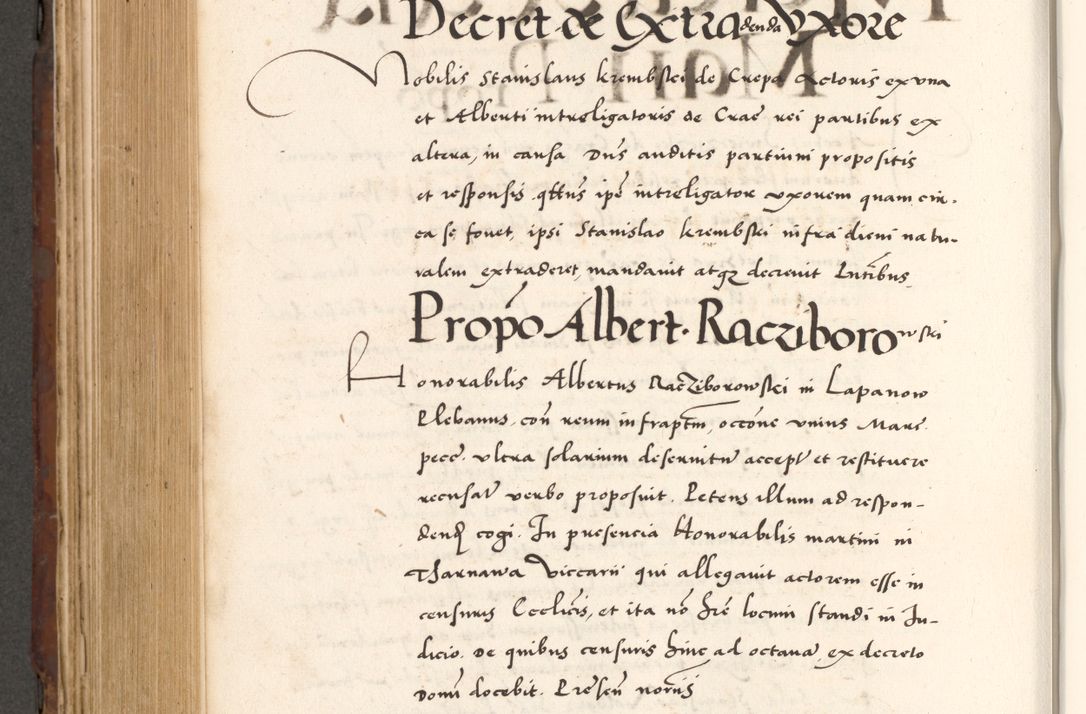 Decret de Extradenda Vxore
Nobilis Stanislaus krembski de Crepa Actoris ex vna
et Alberti introligatoris de Crac̄ rei partibus ex
altera, in causa Dn̄s auditis partium propositis
et responsis q̄ttus ip̄e introligator vxorem quam cir-
ca se fouet, ipsi Stanislao krembski infra diem natu-
ralem extraderet, mandauit atq₃ decreuit Int̄ibus
Prop̄o Albert. Racziborowski
Honorabilis Albertus Racziborowski in Lapanow
Plebanus, con̄ reum infrap̄tm, occ̄one vnius Marc.
pecc. vltra solarium deseruitū accept̄ et restituere
recusat̄ verbo proposuit. Petens illum ad respon-
dend̄ cogi. In presencia Honorabilis martini in
Tharnawa Viccarii qui allegauit actorem esse in
censuris Ecclīcis, et ita nō h̄re locum standi in Ju-
dicio. De quibus censuris hinc ad octauā ex decreto
Domī docebit. Presen̄ nor̄iis